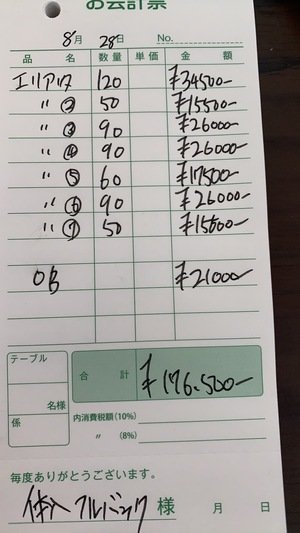 お会計票
8月 28日 No.
品 名 数量 単価 金 額
120 ¥34500-
〃 ② 50 ¥15500-
〃 ③ 90 ¥26000-
〃 ④ 90 ¥26000-
〃 ⑤ 60 ¥17500-
〃 ⑥ 90 ¥26000-
〃 ⑦ 50 ¥15500-
OB ¥21000-
テーブル
合 計 ¥176.500-
名様
係 内消費税額(10%)
〃 (8%)
毎度ありがとうございます。
体入 フルバック 様 月 日